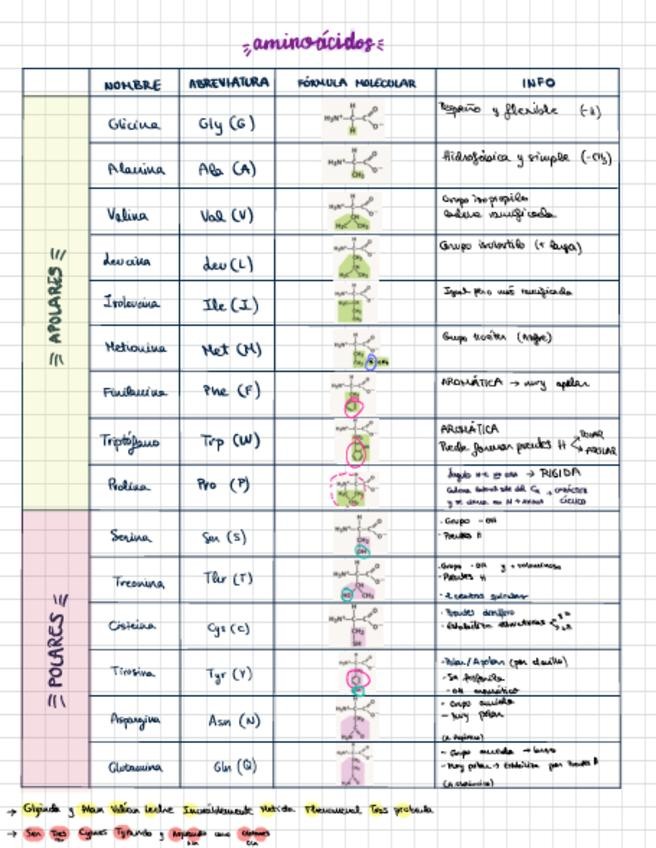 aminoácidos
NOMBRE ABREVIATURA FÓRMULA MOLECULAR INFO
APOLARES
Glicina Gly (G) Pequeño y flexible (-H)
Alanina Ala (A) Hidrofóbica y simple (-CH₃)
Valina Val (V) Grupo isopropilo
cadena ramificada
Leucina Leu (L) Grupo isobutilo (+ larga)
Isoleucina Ile (I) Igual pero más ramificada
Metionina Met (M) Grupo tioéter (azufre)
Fenilalanina Phe (F) AROMÁTICA → muy apolar
Triptófano Trp (W) AROMÁTICA
Puede formar puentes H POLAR
APOLAR
Prolina Pro (P) → RÍGIDA
CARÁCTER
CÍCLICO
POLARES
Serina Ser (S) - Grupo -OH
- Puentes H
Treonina Thr (T) - Grupo -OH y + voluminoso
- Puentes H
- 2 centros quirales
Cisteína Cys (C) - Puentes disulfuro
- Estabiliza estructuras
Tirosina Tyr (Y) - Polar/Apolar (por anillo)
- Se fosforila
- OH aromático
Asparagina Asn (N) - Grupo amida
- Muy polar
Glutamina Gln (Q) - Grupo amida → largo
- Muy polar → Estabiliza por puentes H
→ y Valían Leche Increíblemente Metida Phenomenal
→ Ser Tres Cysnes Tyrando y como